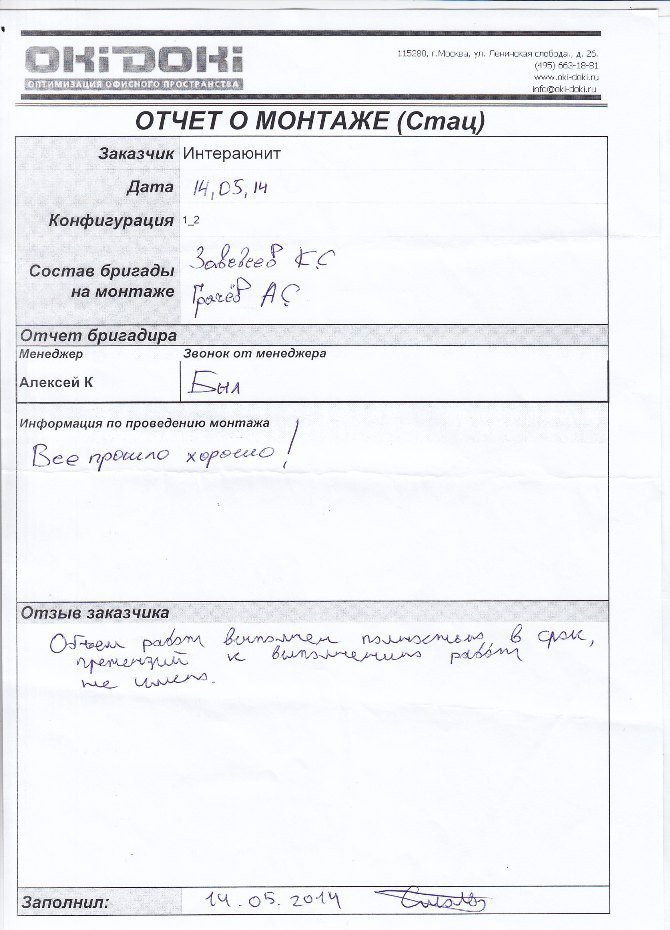 OKIDOKI
ОПТИМИЗАЦИЯ ОФИСНОГО ПРОСТРАНСТВА
115280, г.Москва, ул. Ленинская слобода., д. 26.
(495) 663-18-81
www.oki-doki.ru
info@oki-doki.ru
ОТЧЕТ О МОНТАЖЕ (Стац)
Заказчик Интераюнит
Дата 14,05,14
Конфигурация 1_2
Состав бригады
на монтаже
К С
Грачёв А С
Отчет бригадира
Менеджер Звонок от менеджера
Алексей К Был
Информация по проведению монтажа
Все прошло хорошо!
Отзыв заказчика
Объем работ выполнен полностью, в срок,
претензий к выполнению работ
не имею.
Заполнил: 14.05.2014